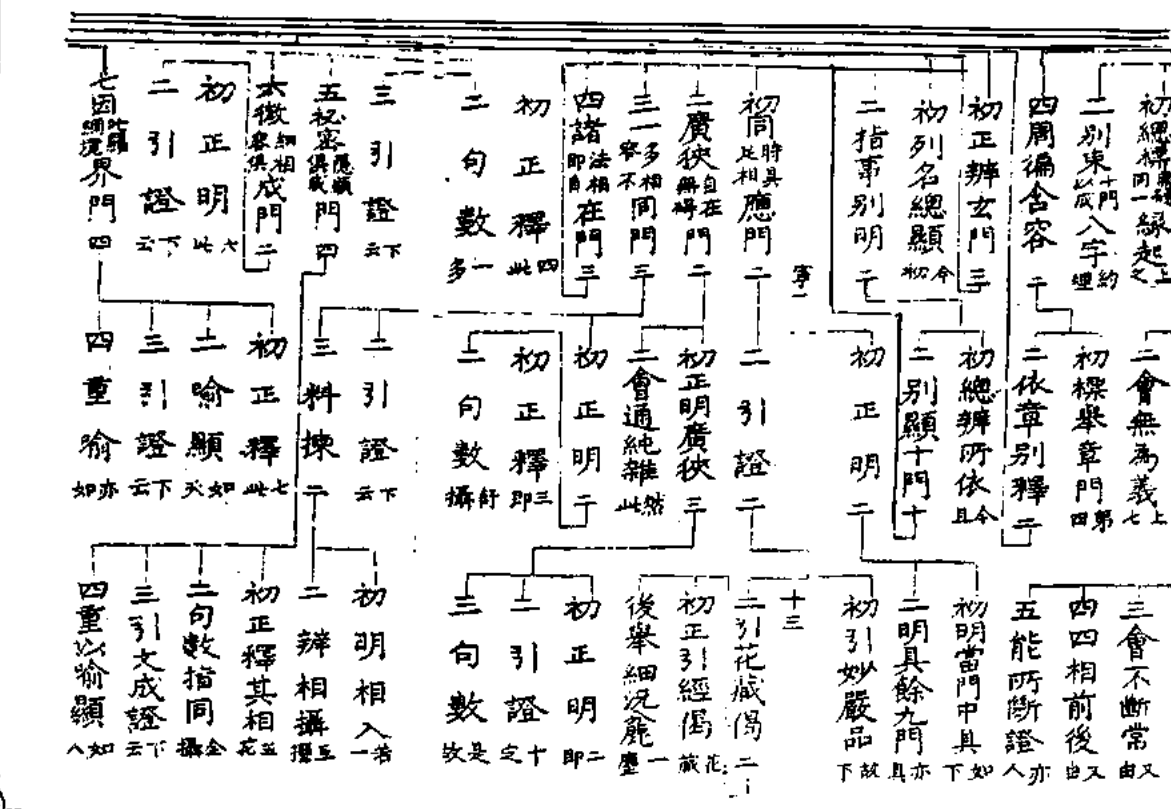 初總標 同一緣起 之上
二別束 十門以成 八字 經約
四周徧含容 二
初正辨玄門 三
初列名總顯 初今
二指事別明 二
初同 時具比相 應門 二
二廣狹 自在無碍 門 二
三一 多相容不 同門 三
四諸 法相即自 在門 三
初正釋 此四
二句數 多一
三引證 云下
五秘密 隱顯俱成 門 四
六微 細相容俱 成門 二
初正明 此六
二引證 云下
七因 界門 四
寧一
二會無為義 七上
初標舉章門 四第
二依章別釋 二
初總辨所依 且今
二別顯十門 十
初正明 二
二引證 二
初正明廣狹 三
二會通純雜 此然
初正明 二
初正釋 即三
二句數 攝舒
二引證 云下
三料揀 二
初正釋 此七
二喻顯 天如
三引證 云下
四重喻 如亦
三會不斷常 由又
四四相前後 由又
五能所斷證 人亦
初明當門中具 下如
二明具餘九門 具亦
初引妙嚴品 下故
十三
二引花藏偈 二
初正引經偈 藏花
後舉細況麁 塵一
初正明 即二
二引證 定十
三句數 故是
初明相入 一若
二辨相攝 攝互
初正釋其相 花並
二句數指同 攝全
三引文成證 云下
四重以喻顯 人如